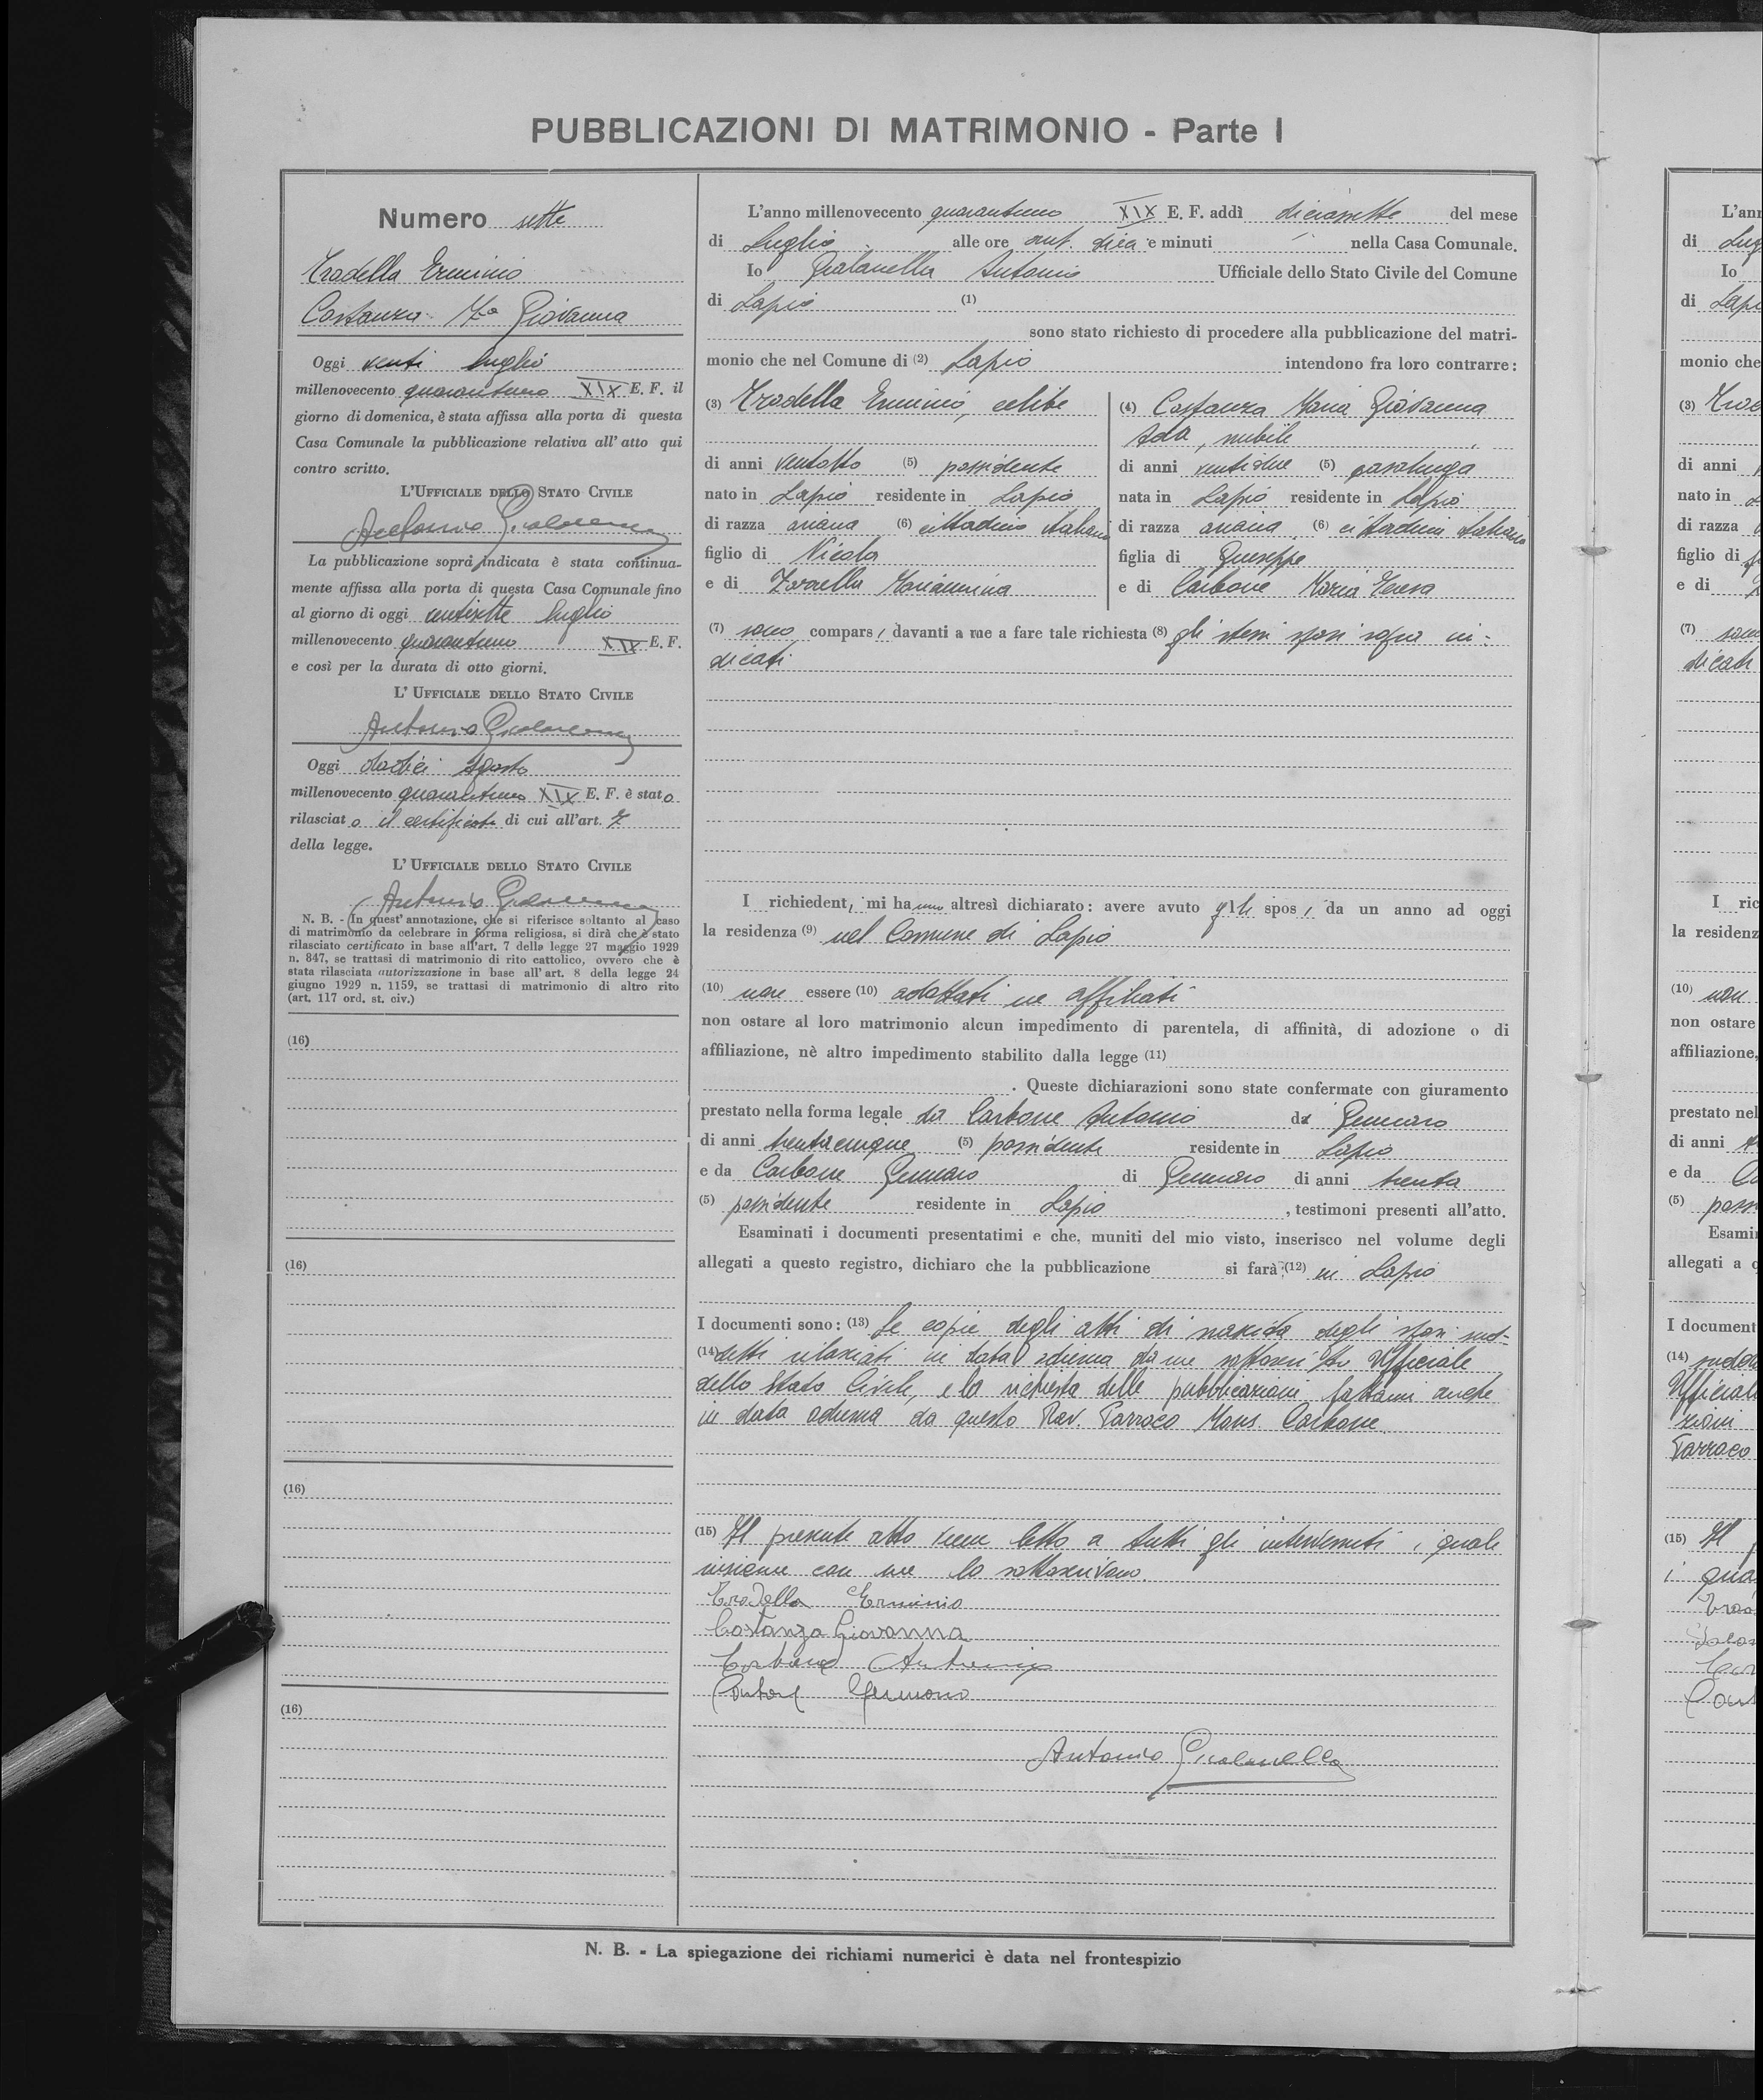 PUBBLICAZIONI DI MATRIMONIO - Parte I
Numero sette
Trodella Erminio
Costanza Ma Giovanna
Oggi venti luglio
millenovecento quarantuno XIX E. F. il
giorno di domenica, è stata affissa alla porta di questa
Casa Comunale la pubblicazione relativa all'atto qui
contro scritto.
L'UFFICIALE DELLO STATO CIVILE
Antonio
La pubblicazione sopra indicata è stata continua-
mente affissa alla porta di questa Casa Comunale fino
al giorno di oggi ventisette luglio
millenovecento quarantuno XIX E. F.
e così per la durata di otto giorni.
L'UFFICIALE DELLO STATO CIVILE
Antonio
Oggi dodici Agosto
millenovecento quarantuno XIX E. F. è stato
rilasciato il certificato di cui all'art. 7
della legge.
L'UFFICIALE DELLO STATO CIVILE
Antonio
N. B. - In quest'annotazione, che si riferisce soltanto al caso
di matrimonio da celebrare in forma religiosa, si dirà che è stato
rilasciato certificato in base all'art. 7 della legge 27 maggio 1929
n. 847, se trattasi di matrimonio di rito cattolico, ovvero che è
stata rilasciata autorizzazione in base all'art. 8 della legge 24
giugno 1929 n. 1159, se trattasi di matrimonio di altro rito
(art. 117 ord. st. civ.)
(16)
(16)
(16)
(16)
L'anno millenovecento quarantuno XIX E. F. addì diciassette del mese
di Luglio alle ore ant. dieci e minuti nella Casa Comunale.
Io Antonio Ufficiale dello Stato Civile del Comune
di Lapio (1)
sono stato richiesto di procedere alla pubblicazione del matri-
monio che nel Comune di (2) Lapio intendono fra loro contrarre:
(3) Trodella Erminio, celibe
di anni ventotto (5) possidente
nato in Lapio residente in Lapio
di razza ariana (6) cittadino italiano
figlio di Nicola
e di Mariannina
(4) Costanza Maria Giovanna
Ada, nubile
di anni ventidue (5) casalinga
nata in Lapio residente in Lapio
di razza ariana (6) cittadina italiana
figlia di Giuseppe
e di Carbone Maria Teresa
(7) sono compars i davanti a me a fare tale richiesta (8) gli stessi sposi sopra in-
dicati
I richiedent i mi hanno altresì dichiarato: avere avuto gli spos i da un anno ad oggi
la residenza (9) nel Comune di Lapio
(10) non essere (10) adottati ne affiliati
non ostare al loro matrimonio alcun impedimento di parentela, di affinità, di adozione o di
affiliazione, nè altro impedimento stabilito dalla legge (11)
. Queste dichiarazioni sono state confermate con giuramento
prestato nella forma legale da Carbone Antonio di Gennaro
di anni trentacinque (5) possidente residente in Lapio
e da Carbone Gennaro di Gennaro di anni trenta
(5) possidente residente in Lapio , testimoni presenti all'atto.
Esaminati i documenti presentatimi e che, muniti del mio visto, inserisco nel volume degli
allegati a questo registro, dichiaro che la pubblicazione si farà (12) in Lapio
I documenti sono: (13) Le copie degli atti di nascita degli sposi sud-
(14) detti rilasciati in data odierna da me sottoscritto Ufficiale
dello Stato Civile, e la richiesta delle pubblicazioni fattami anche
in data odierna da questo Rev. Parroco Mons. Carbone.
(15) Il presente atto viene letto a tutti gli intervenuti i quali
insieme con me lo sottoscrivono.
Trodella Erminio
Costanza Giovanna
Carbone Antonio
Carbone Gennaro
Antonio
N. B. - La spiegazione dei richiami numerici è data nel frontespizio
L'ann
di Lug
Io
di Lapi
monio che
(3) Trod
di anni
nato in
di razza
figlio di
e di
(7) sono
dicati
I ric
la residenz
(10) non
non ostare
affiliazione,
prestato nel
di anni
e da
(5) poss
Esami
allegati a q
I document
(14) sudde
Ufficial
zioni
Parroco
(15) Il
i qua